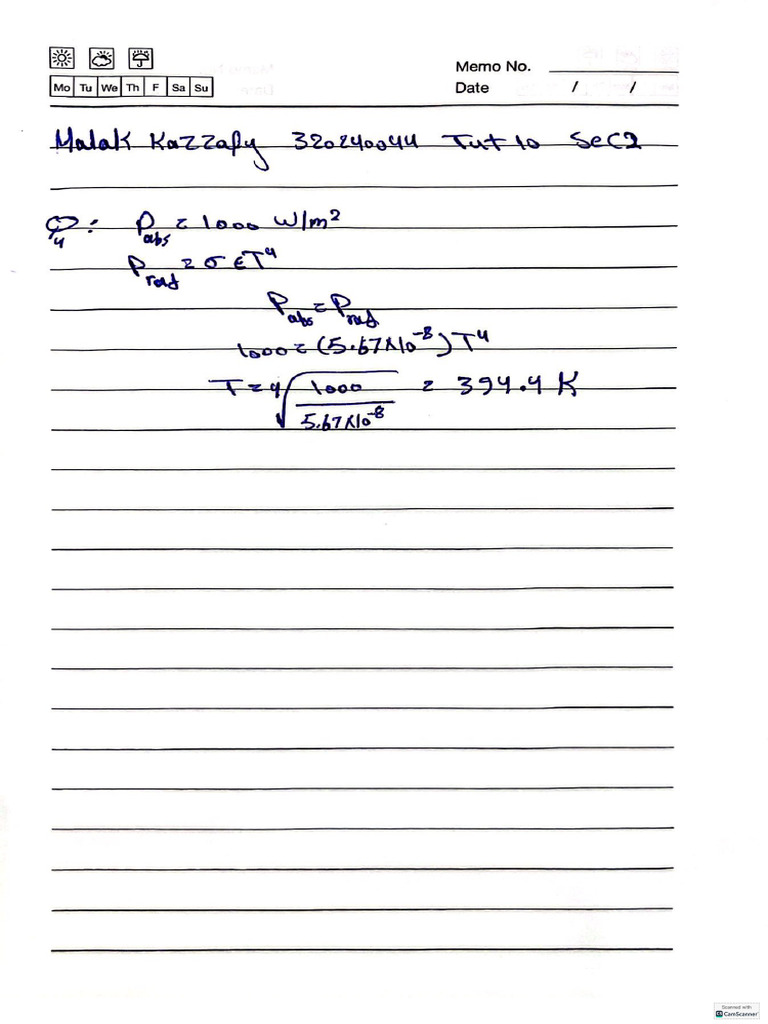 Memo No.
Mo Tu We Th F Sa Su
Date / /
Malak Kazzafy 320240044 Tut 10 Sec2
Q4: Pabs = 1000 W/m²
Prad = σ ϵ T⁴
Pabs = Prad
1000 = (5.67×10⁻⁸) T⁴
T = ⁴√(1000 / 5.67×10⁻⁸) = 394.4 K
Scanned with
CamScanner